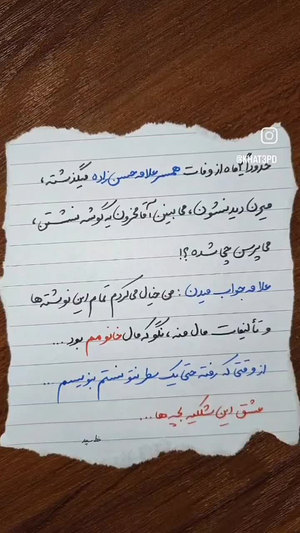 @KHAT3PD
حدوداً ۲ماه از وفات همسر علامه حسن زاده میگذشته،
میرن دیدنشون، می‌بینن آقا محزون یه گوشه نشستن،
می‌پرسن چی شده؟!
علامه جواب میدن: می خیال می‌کردم تمام این نوشته‌ها
و تألیفات مال منه، نگو که مال خانومم بود...
از وقتی که رفته حتی یک سطر نتونستم بنویسم...
عشق این شکلیه بچه‌ها...